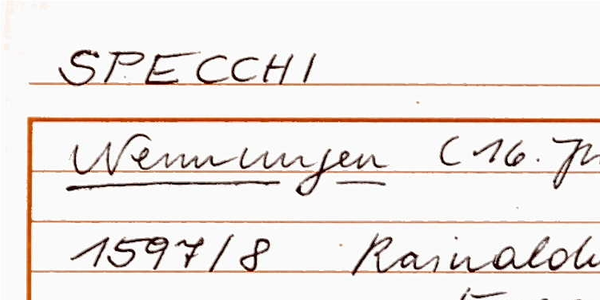 SPECCHI
Nennungen (16. Jh
1597/8 Rainald